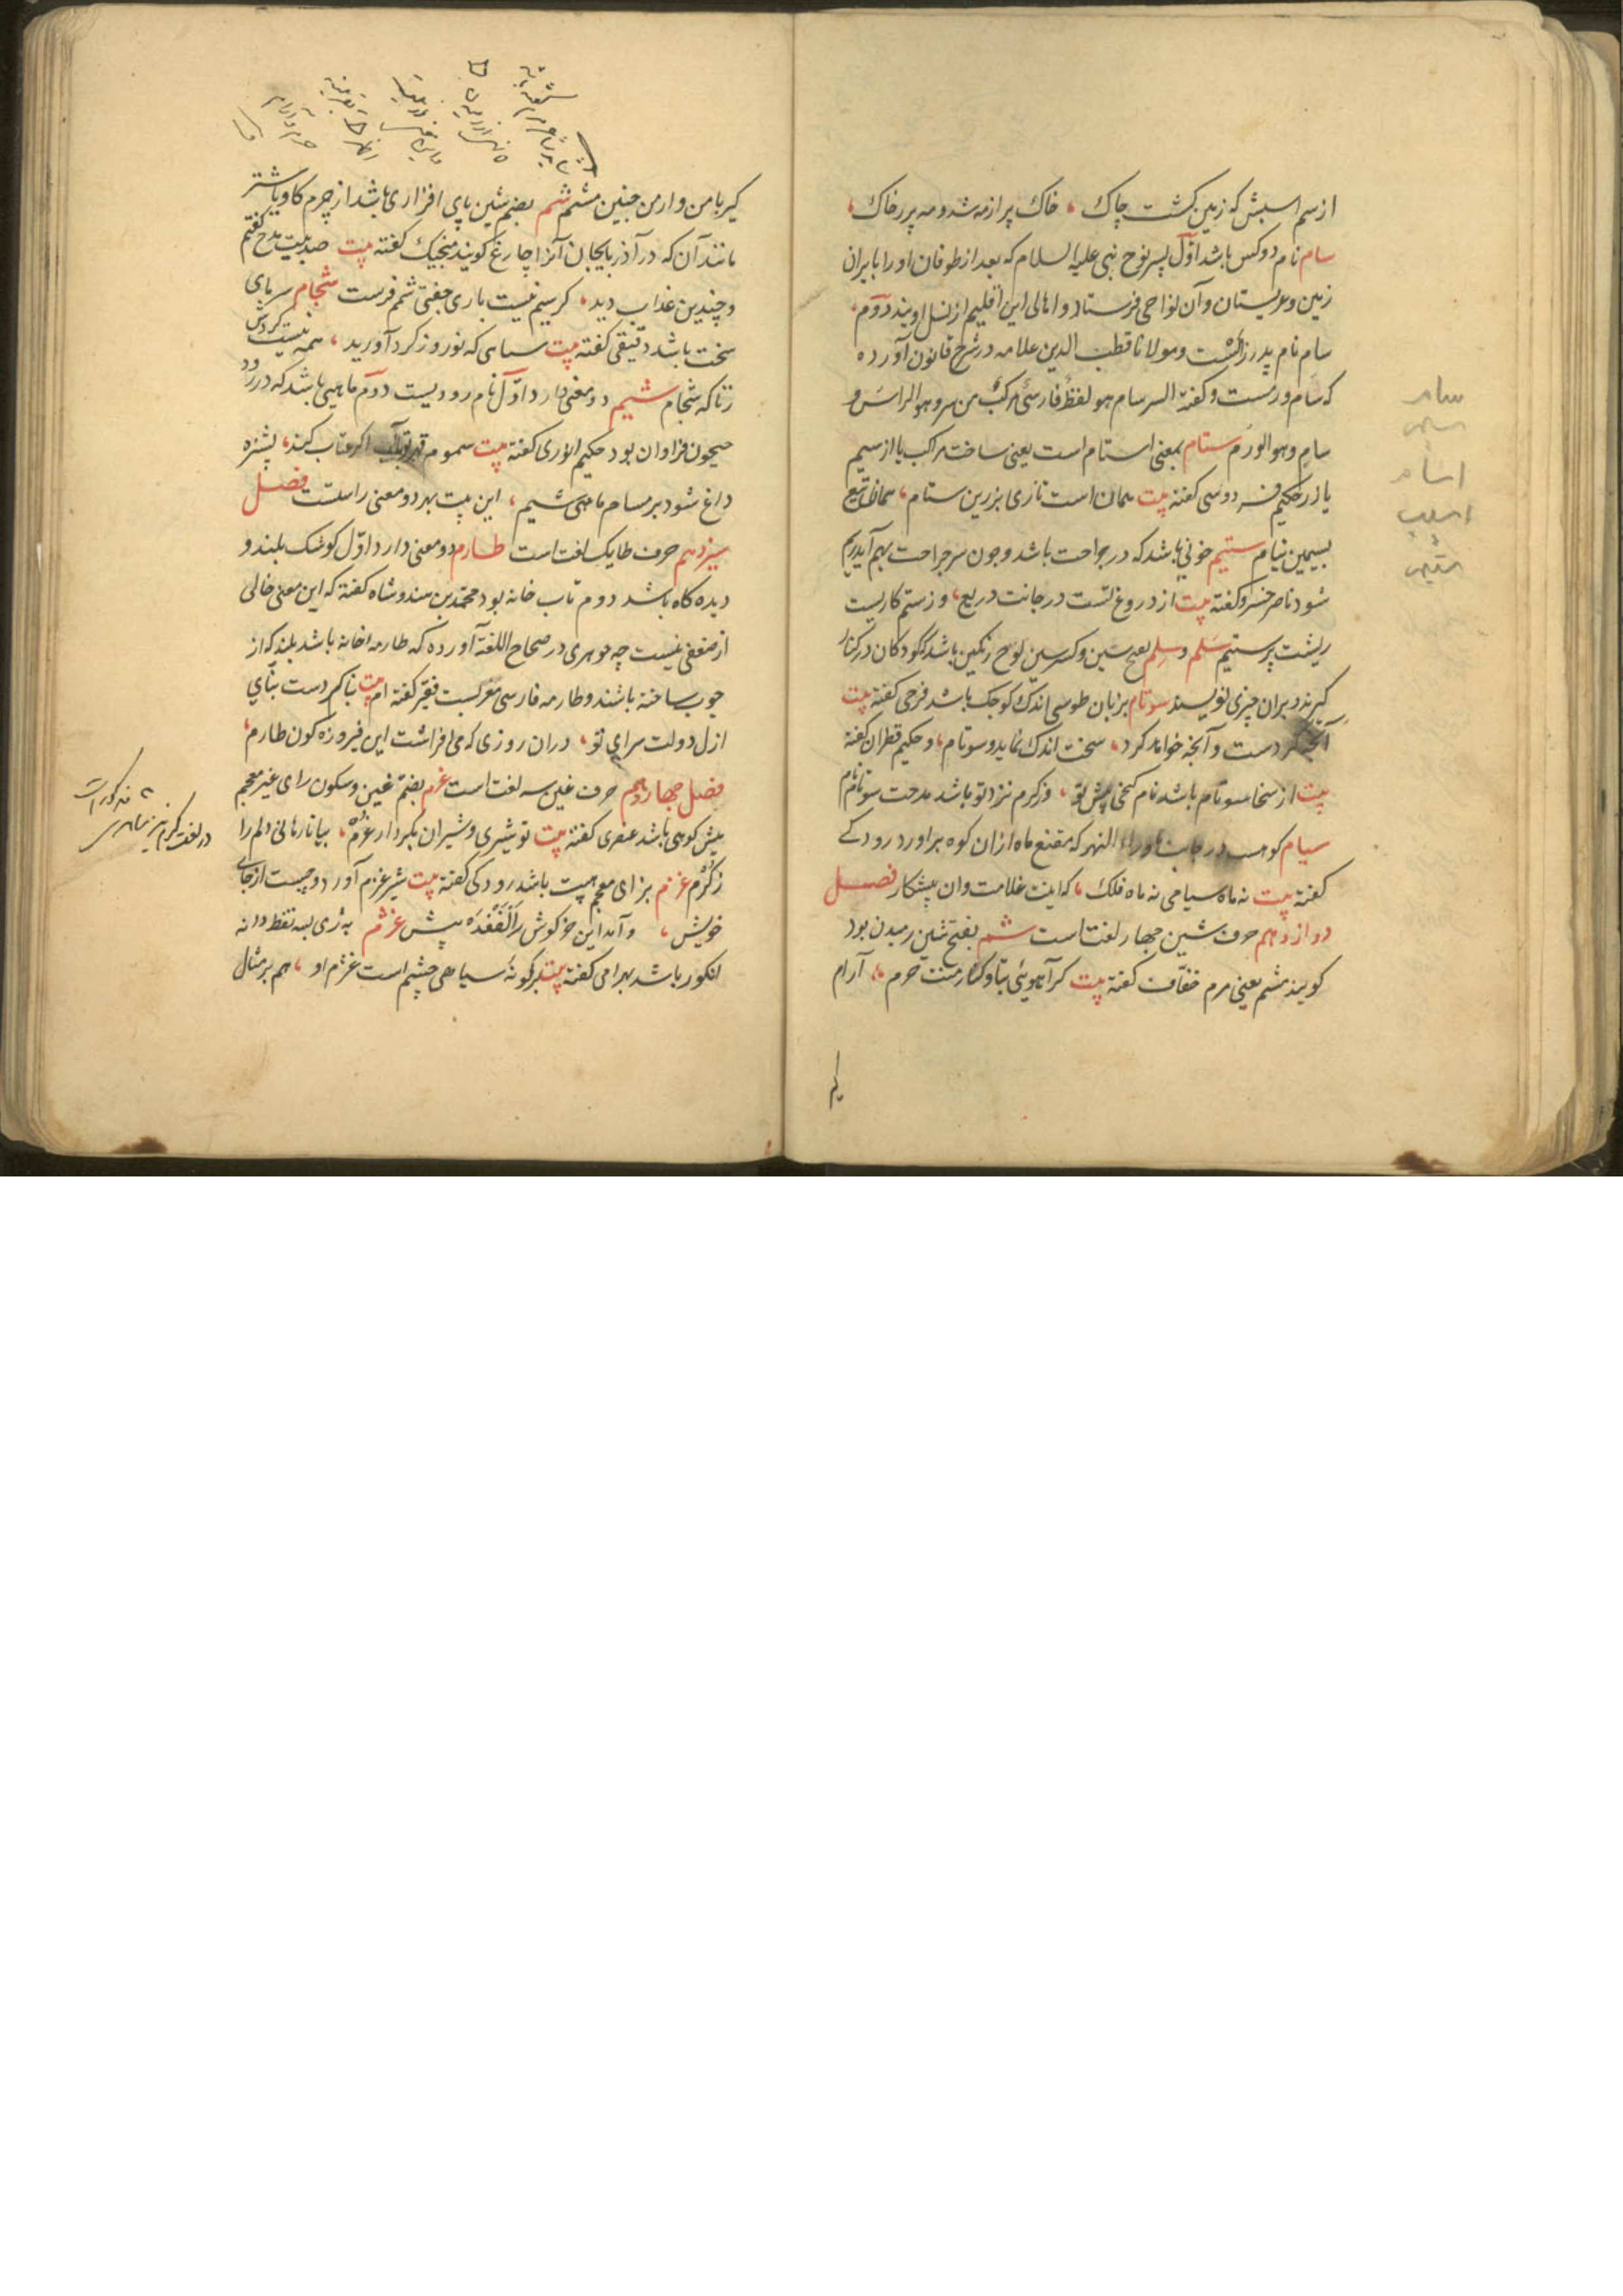 از سم اسبش که زمین گشت چاک ، خاک پر از مه شد و مه پر ز خاک ،
سام نام دو کس باشد اوّل پسر نوح نبی علیه السلام که بعد از طوفان او را بایران
زمین و عربستان و آن نواحی فرستاد و اهالی این اقلیم از نسل اویند دوم
سام نام پدر زالست و مولانا قطب الدین علامه در شرح قانون آورده
که سام ورمست و گفته السرسام هو لفظ فارسی مرکب من سر و هو الراس و
سام و هو الورم ستام بمعنی استام است یعنی ساخت مراکب یا از سیم
یا زر حکیم فردوسی گفته بیت همان اسب تازی بزرین ستام ، همان تیغ
بسیمین نیام ستیم خونی باشد که در جراحت باشد و چون سر جراحت بهم آید ریم
شود ناصر خسرو گفته بیت از دروغ تست در جانت دریغ ، وز ستم کاریست
ریشت پر ستیم سَلم و سِلم بفتح سین و کسر سین لوح رنگین باشد که کودکان در کنار
گیرند و بران چیزی نویسند سوتام بزبان طوسی اندک و کوچک باشد فرخی گفته بیت
آنچه کردست و آنچه خواهد کرد ، سخت اندک نماید و سوتام ، و حکیم قطران گفته
بیت از سخا سوتام باشد نام گنجی پیش تو ، وز کرم نزد تو باشد مدحت سوتام نام
سیام کوهست در جانب ماوراء النهر که مقنع ماه ازان کوه براورد رودکی
گفته بیت نه ماه سیامی نه ماه فلک ، که اینت غلامست وان پیشکار فصل
دوازدهم حرف شین چهار لغت است شم بفتح شین رمیدن بود
گویند مشم یعنی مرم خفاف گفته بیت گر آهویی بتا و کنار منت حرم ، آرام
گیر با من و از من چنین مشم شم بضم شین پای افزاری باشد از چرم گاو یا شتر
مانند آن که در آذربایجان آنرا چارغ گویند منجیک گفته بیت صد بیت مدح گفتم
و چندین عذاب دید ، گر سیم نیست باری جفتی شمم فرست شجام سرمای
سخت باشد دقیقی گفته بیت سپاهی که نوروز گرد آورید ، همه نیست کردش
زناگه شجام شیم دو معنی دارد اوّل نام رودیست دوّم ماهیی باشد که در رود
جیحون فراوان بود حکیم انوری گفته بیت سموم قهر تو با آب اگر عتاب کند ، پشیزه
داغ شود بر مسام ماهی شیم ، این بیت بهر دو معنی راستست فصل
سیزدهم حرف طا یک لغت است طارم دو معنی دارد اوّل کوشک بلند و
دیده گاه باشد دوم تاب خانه بود محمد بن هندوشاه گفته که این معنی خالی
از ضعفی نیست چه جوهری در صحاح اللغة آورده که طارمه خانه باشد بلند که از
چوب ساخته باشند و طارمه فارسی معربست فقیر گفته ام بیت بنا کردست بنّای
ازل دولت سرای تو ، دران روزی که می افراشت این فیروزه گون طارم ،
فصل چهاردهم حرف غین سه لغت است غرم بضم غین و سکون رای غیر معجم
میش کوهی باشد عنصری گفته بیت تو شیری و شیران بکردار غرم ، بیا تا رهانی دلم را
ز گرم غزم بزای معجم پیت باشد رودکی گفته بیت شیر غزم آورد و جست از جای
خویش ، و آمد این خرگوش را الفغده پیش غژم به ژی سه نقط دانه
انگور باشد بهرامی گفته بیت بگونهٔ سیاهی چشم است غژم او ، هم بر مثال
سام
اسام